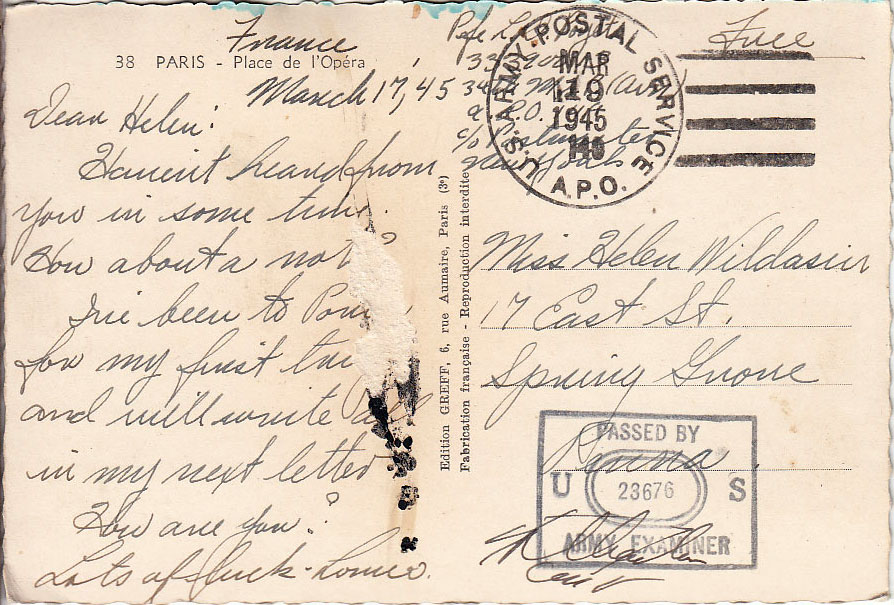 France
38 PARIS - Place de l'Opéra
March 17, 45
Dear Helen:
Haven't heard from
you in some time.
How about a
I've been to
for my first
and will write
in my next letter
How are you?
Lots of luck - Romeo.
Edition GREFF, 6, rue Aumaire, Paris (3e)
Fabrication française - Reproduction interdite
Pfc
Free
New York
U.S. ARMY POSTAL SERVICE
MAR
19
1945
A.P.O.
Miss Helen Wildasin
17 East St.
Spring Grove
Penna.
PASSED BY
U 23676 S
ARMY EXAMINER